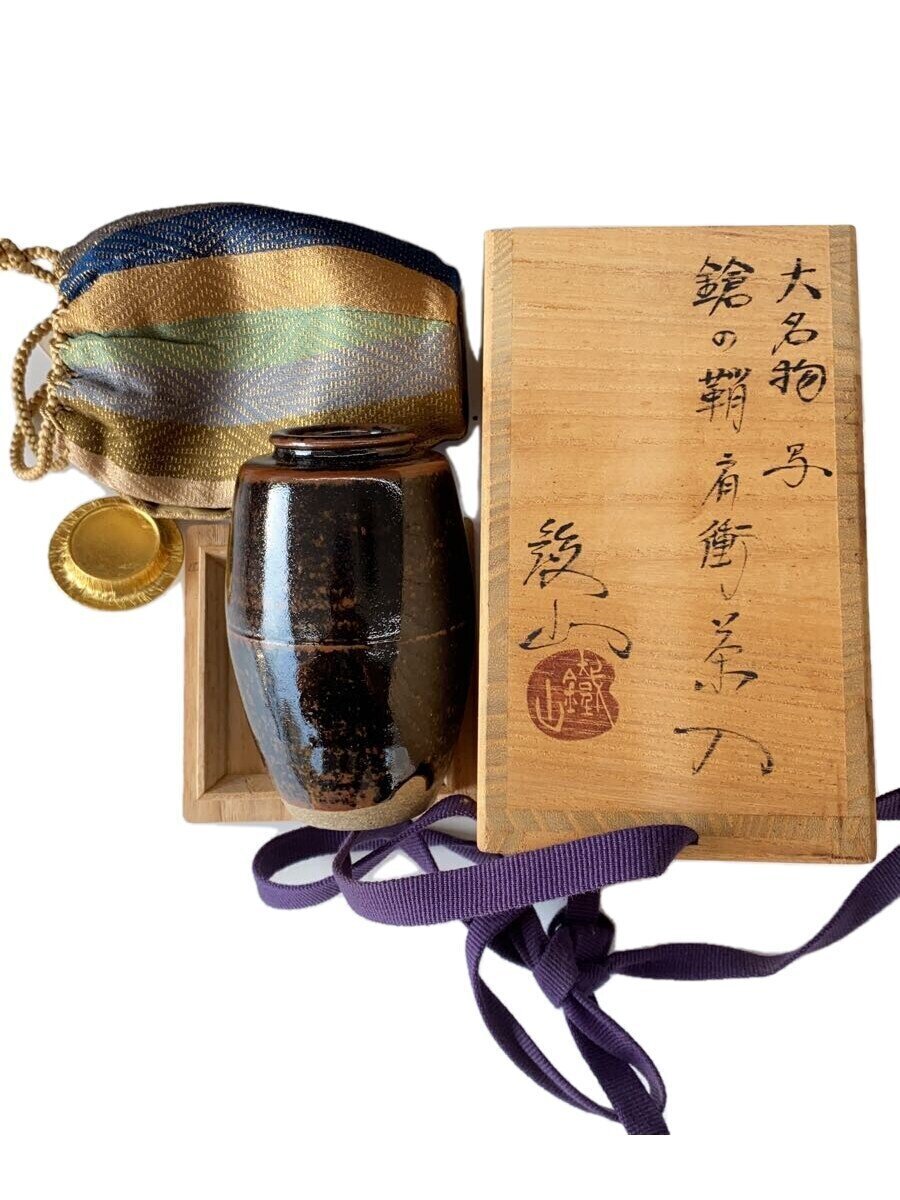 大名物 写
鎗の鞘 肩衝茶入
鐵山